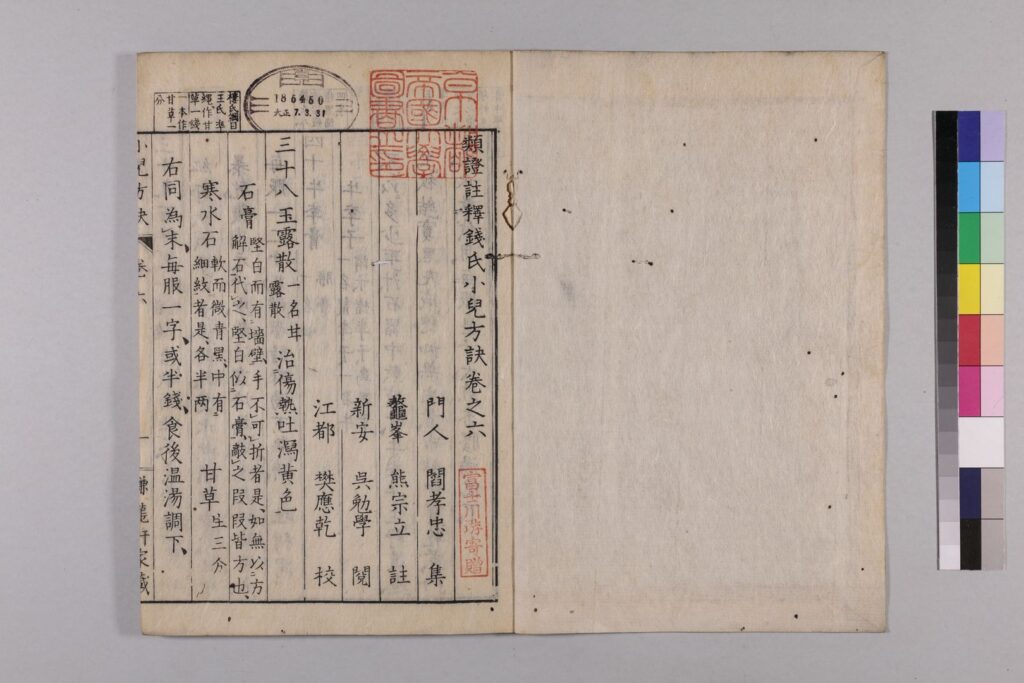 類證註釋錢氏小兒方訣卷之六
門人 閻孝忠 集
鼇峯 熊宗立 註
新安 吳勉學 閱
江都 樊應乾 校
三十八 玉露散 一名甘露散 治傷熱吐瀉黃色
石膏 堅白而有墻壁、手不可折者是、如無以方
解石代之、堅白似石膏、敲之段段皆方也、
寒水石 軟而微青黑、中有
細紋者是、各半兩 甘草 生三分
右同為末、每服一字、或半錢、食後温湯調下、
小兒方訣 卷六
京都帝國大學圖書之印
186450
大正 7.3.31
富士川游寄贈